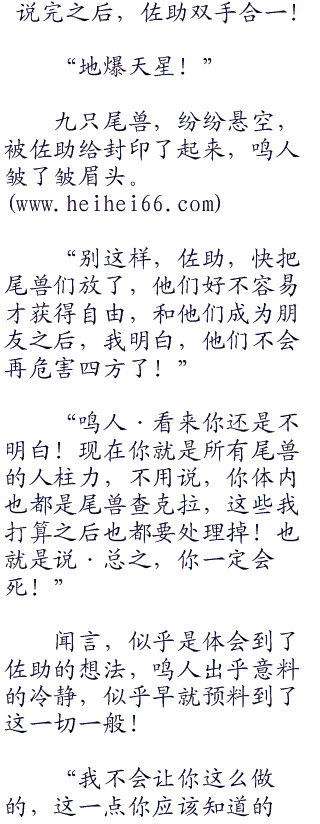 说完之后，佐助双手合一！
“地爆天星！”
九只尾兽，纷纷悬空，
被佐助给封印了起来，鸣人
皱了皱眉头。
(www.heihei66.com)
“别这样，佐助，快把
尾兽们放了，他们好不容易
才获得自由，和他们成为朋
友之后，我明白，他们不会
再危害四方了！”
“鸣人·看来你还是不
明白！现在你就是所有尾兽
的人柱力，不用说，你体内
也都是尾兽查克拉，这些我
打算之后也都要处理掉！也
就是说·总之，你一定会
死！”
闻言，似乎是体会到了
佐助的想法，鸣人出乎意料
的冷静，似乎早就预料到了
这一切一般！
“我不会让你这么做
的，这一点你应该知道的